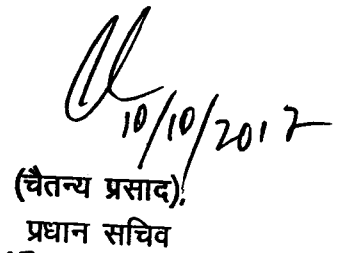 10/10/2017
(चैतन्य प्रसाद)
प्रधान सचिव